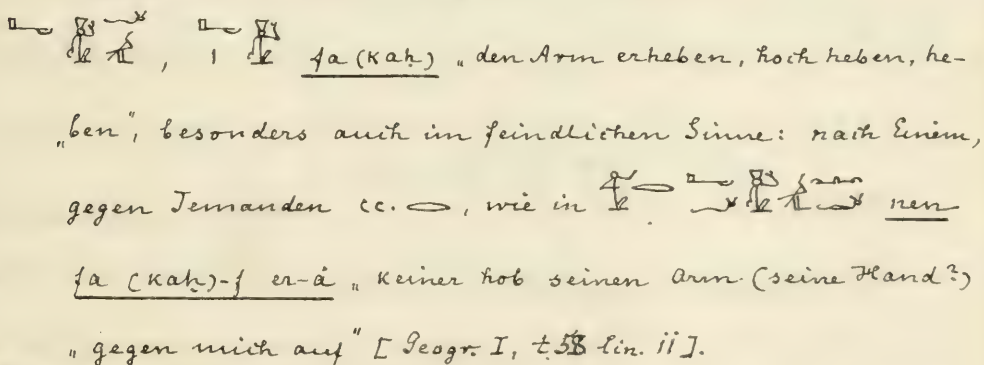 , fa (kaḥ) „den Arm erheben, hoch heben, he-
„ben“, besonders auch im feindlichen Sinne: nach Einem,
gegen Jemanden cc. , wie in nen
fa (kaḥ)-f er-á „keiner hob seinen Arm (seine Hand?)
„gegen mich auf“ [Geogr. I, t. lin. ii].